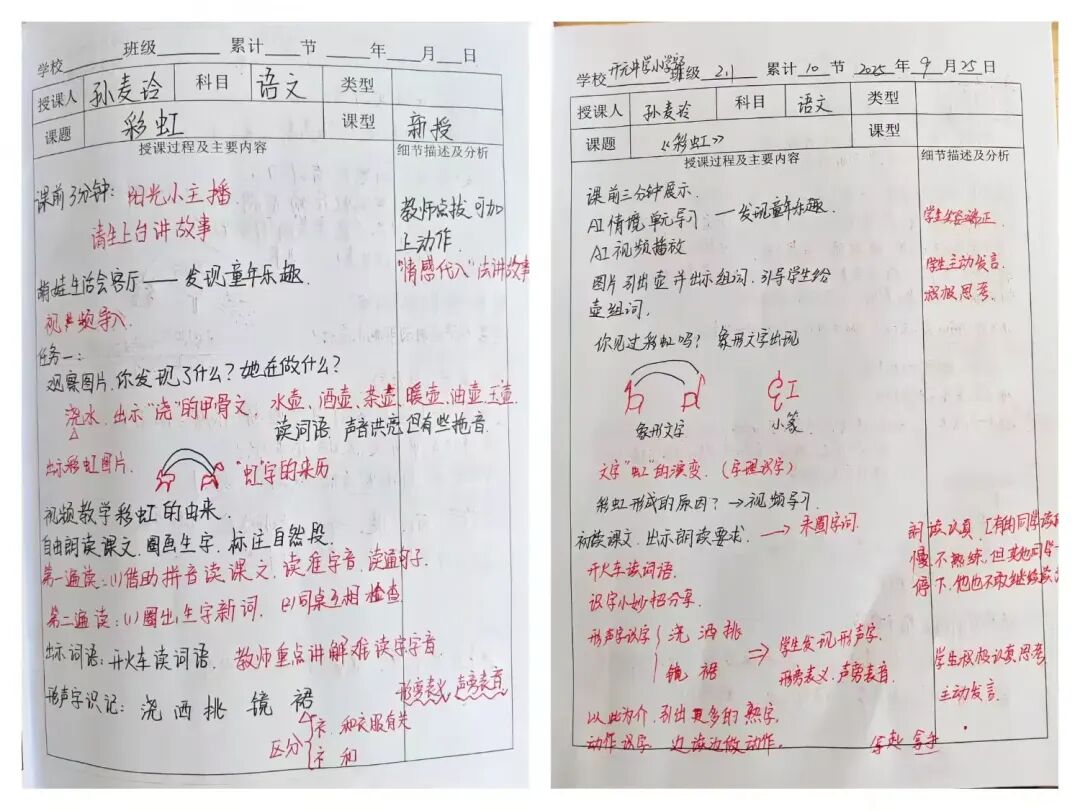 学校 班级 累计 节 年 月 日
授课人 孙麦玲 科目 语文 类型
课题 彩虹 课型 新授
授课过程及主要内容 细节描述及分析
课前3分钟：阳光小主播
请生上台讲故事
教师点拔可加
上动作.
"情感代入"法讲故事
萌娃生活会客厅——发现童年乐趣
视频导入
任务一：
观察图片,你发现了什么？她在做什么？
浇水.出示"浇"的甲骨文,水壶、酒壶、茶壶、暖壶、油壶、玉壶
读词语.声音洪亮但有些拖音.
出示彩虹图片. "虹"字的来历
视频教学彩虹的由来.
自由朗读课文.圈画生字.标注自然段.
第一遍读：(1)借助拼音读课文,读准字音,读通句子.
第二遍读：(1)圈出生字新词. (2)同桌互相检查
出示词语：开火车读词语. 教师重点讲解难读字字音.
形声字识记：浇 洒 挑 镜 裙
形旁表义,声旁表音
区分 衤 和衣服有关
礻 和
学校 开元中学小学部 班级 2.1 累计 10 节 2025年 9月25日
授课人 孙麦玲 科目 语文 类型
课题 《彩虹》 课型
授课过程及主要内容 细节描述及分析
课前三分钟展示.
AI情境单元导习——发现童年乐趣.
AI视频播放
学生坐姿端正
图片引出壶并出示组词.引导学生给
壶组词.
学生主动发言.
积极思考.
你见过彩虹吗？ 象形文字出现
象形文字 小篆
文字"虹"的演变.(字理识字)
彩虹形成的原因？→视频导习
初读课文.出示朗读要求. → 来圈字词.
开火车读词语.
朗读认真.[有的同学读的
慢 不熟练,但其他同学一
停下,他也不敢继续读
识字小妙招分享.
形声字识字 浇 洒 挑
镜 裙
⇒ 学生发现形声字.
形旁表义.声旁表音.
学生积极认真思考.
主动发言.
以此为介.引出更多的熟字.
动作识字 边读边做动作.